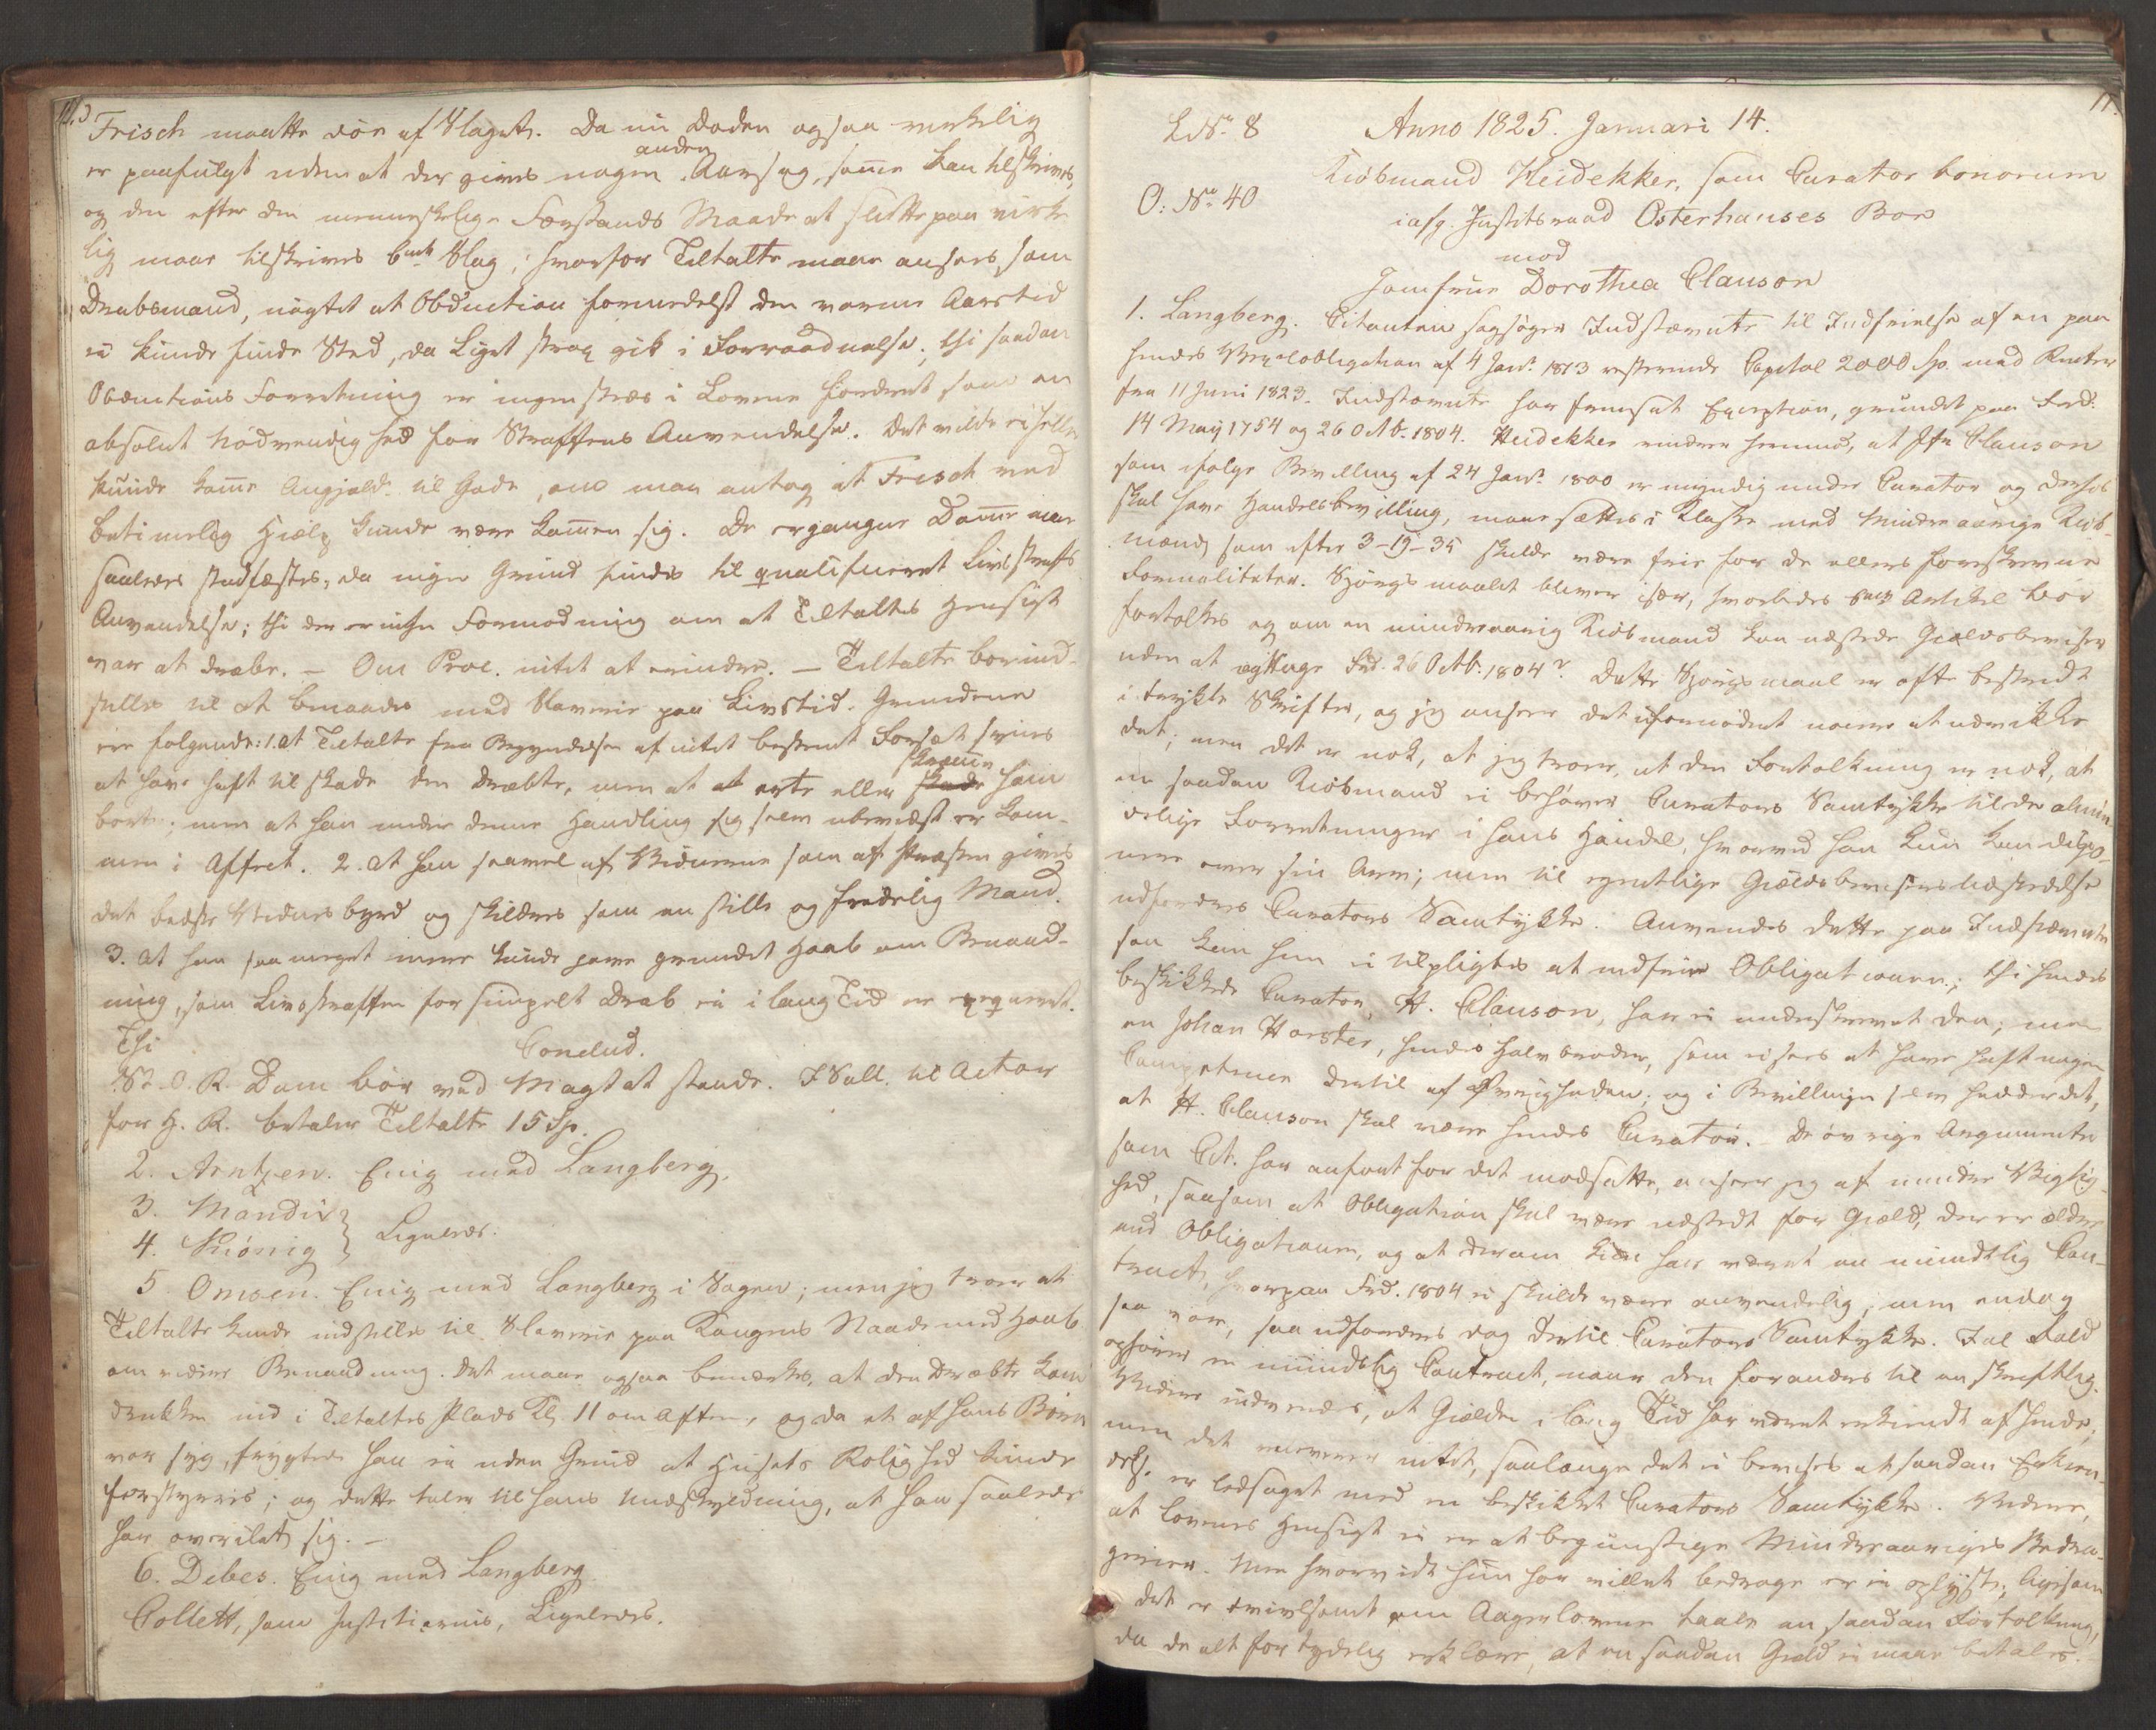 Frisch maatte døe af Slaget. Da nu Døden ogsaa virkelig
er paafulgt uden at der gives nogen anden Aarsag, som kan tilskrives,
og den efter den menneskelige Forstands Maade at slutte paa virke
lig maae tilskrives bmte Slag, hvorfor Tiltalte maae ansees som
Drabsmand, uagtet at Obduction formedelst den varme Aarstid
ei kunde finde Sted, da Liget strax gik i Forraadnelse; thi saadan
Obductions Forretning er ingensteds i Lovene fordret som en
absolut Nødvendighed for Straffens Anvendelse. Det vilde ei heller
kunde komme Angjeld. til Gode, om man antog at Frisch ved
betimelig Hielp kunde være kommen sig. De ergangne Domme maae
saaledes stadfæstes, da ingen Grund findes til qualificeret Livsstraffs
Anvendelse; thi der er ingen Formodning om at Tiltaltes Hensigt
var at dræbe. – Om Proc. intet at erindre. – Tiltalte bør ind-
stilles til at benaades med Slaverie paa Livstid. Grundene
ere følgende: 1. at Tiltalte fra Begyndelsen af intet bestemt Forsæt synes
at have haft til skade den Dræbte, men at at erte eller skræmme ham
bort; men at han under denne Handling sig selv ubevidst er kom-
men i Affect. 2. at han saavel af Vidnerne som af Præsten gives
det bedste Vidnesbyrd og skildres som en stille og fredelig Mand.
3. at han saa meget mere kunde have grundet Haab om Benaad-
ning, som Livsstraffen for simpelt Drab ei i lang Tid er exeqveret.
Thi
Conclud.
St. O. R. Dom bør ved Magt at stande. I Sall. til Actor
for H. R. betaler Tiltalte 15 Sp.
2. Arntzen. Enig med Langberg.
3. Mandix
4. Kiønig } Ligeledes.
5 Omsen. Enig med Langberg i Sagen; men jeg troer at
Tiltalte kunde indstilles til Slaverie paa Kongens Naade med Haab
om videre Benaadning. Det maae ogsaa bemærkes, at den Dræbte kom
drukken ind i Tiltaltes Plads Kl. 11 om Aften, og da et af hans Børn
var syg, frygtede han ei uden Grund at Husets Rolighed kunde
forstyrres; og dette taler til hans Undskyldning, at han saaledes
har overilet sig. –
6. Debes. Enig med Langberg
Collett, som Justitiarius, Ligeledes.
11.
L No. 8 Anno 1825. Januari 14.
O: No. 40
Kiøbmand Heidekker, som Curator bonorum
i afg. Justitsraad Osterhauses Boe
mod
Jomfrue Dorothea Clauson
1. Langberg. Citanten sagsøger Indstævnte til Indfrielse af en paa
hendes Vexelobligation af 4 Janr. 1813 resterende Capital 2000 Sp. med Renter
fra 11 Juni 1823. Indstævnte har fremsat Exception, grundet paa Frd.
14 May 1754 og 26 Octb. 1804. Heidekker erindrer herimod, at Jfr Clauson
som ifølge Bevilling af 24 Janr. 1800 er myndig under Curator og derhos
skal have Handelsbevilling, maae sættes i Klasse med mindreaarige Kiøb-
mænd, som efter 3-19-35 skulde være frie for de ellers foreskrevne
Formaliteter. Spørgsmaalet bliver især, hvorledes bmte Artikel bør
fortolkes og om en mindreaarig Kiøbmand kan udstede Gieldsbeviser
uden at iagttage Frd. 26 Octb. 1804? Dette Spørgsmaal er ofte bestridt
i trykte Skrifter, og jeg anseer det ufornødent nøiere at udvikle
det; men det er nok, at jeg troer, at den Fortolkning er nok, at
en saadan Kiøbmand ei behøver Curators Samtykke til de almin-
delige Forretninger i hans Handel, hvorved han kun kan dispo-
nere over sin Arv; men til egentlige Gieldsbevisers Udstedelse
udfordres Curators Samtykke. Anvendes dette paa Indstævnte
saa kan hun ei tilpligtes at indfrie Obligationen; thi hendes
beskikkede Curator, H. Clauson, har ei underskrevet den; men
en Johan Horster, hendes Halvbroder, som ei sees at have haft nogen
Competence dertil af Øvrigheden; og i Bevillingen selv hedder det,
at H. Clauson skal være hendes Curator. – De øvrige Argumenter
som Cit. har anført for det modsatte, anseer jeg af mindre Vigtig-
hed, saasom at Obligation skal være udstedt for Gield, der er ældre
end Obligationen, og at derom kun har været en mundtlig Con-
tract, hvorpaa Frd. 1804 ei skulde være anvendelig; men endog
saa var, saa udfordres dog dertil Curators Samtykke. I al Fald
ophører en mundtlig Contract, naar den forandres til en skriftlig.
Videre indvendes, at Gielden i lang Tid har været erkiendt af hende;
men det erhverver intet, saalænge det ei bevises at saadan Erkien-
delse er ledsaget med en beskikket Curators Samtykke. Videre,
at Lovenes Hensigt ei er at begunstige Mindreaariges Bedra-
gerier. Men hvorvidt hun har villet bedrage er ei oplyst; ligesom
det er tvivlsomt om Aagerlovene taale en saadan Fortolkning,
da de alt for tydelig erklære, at en saadan Gield ei maae betales.